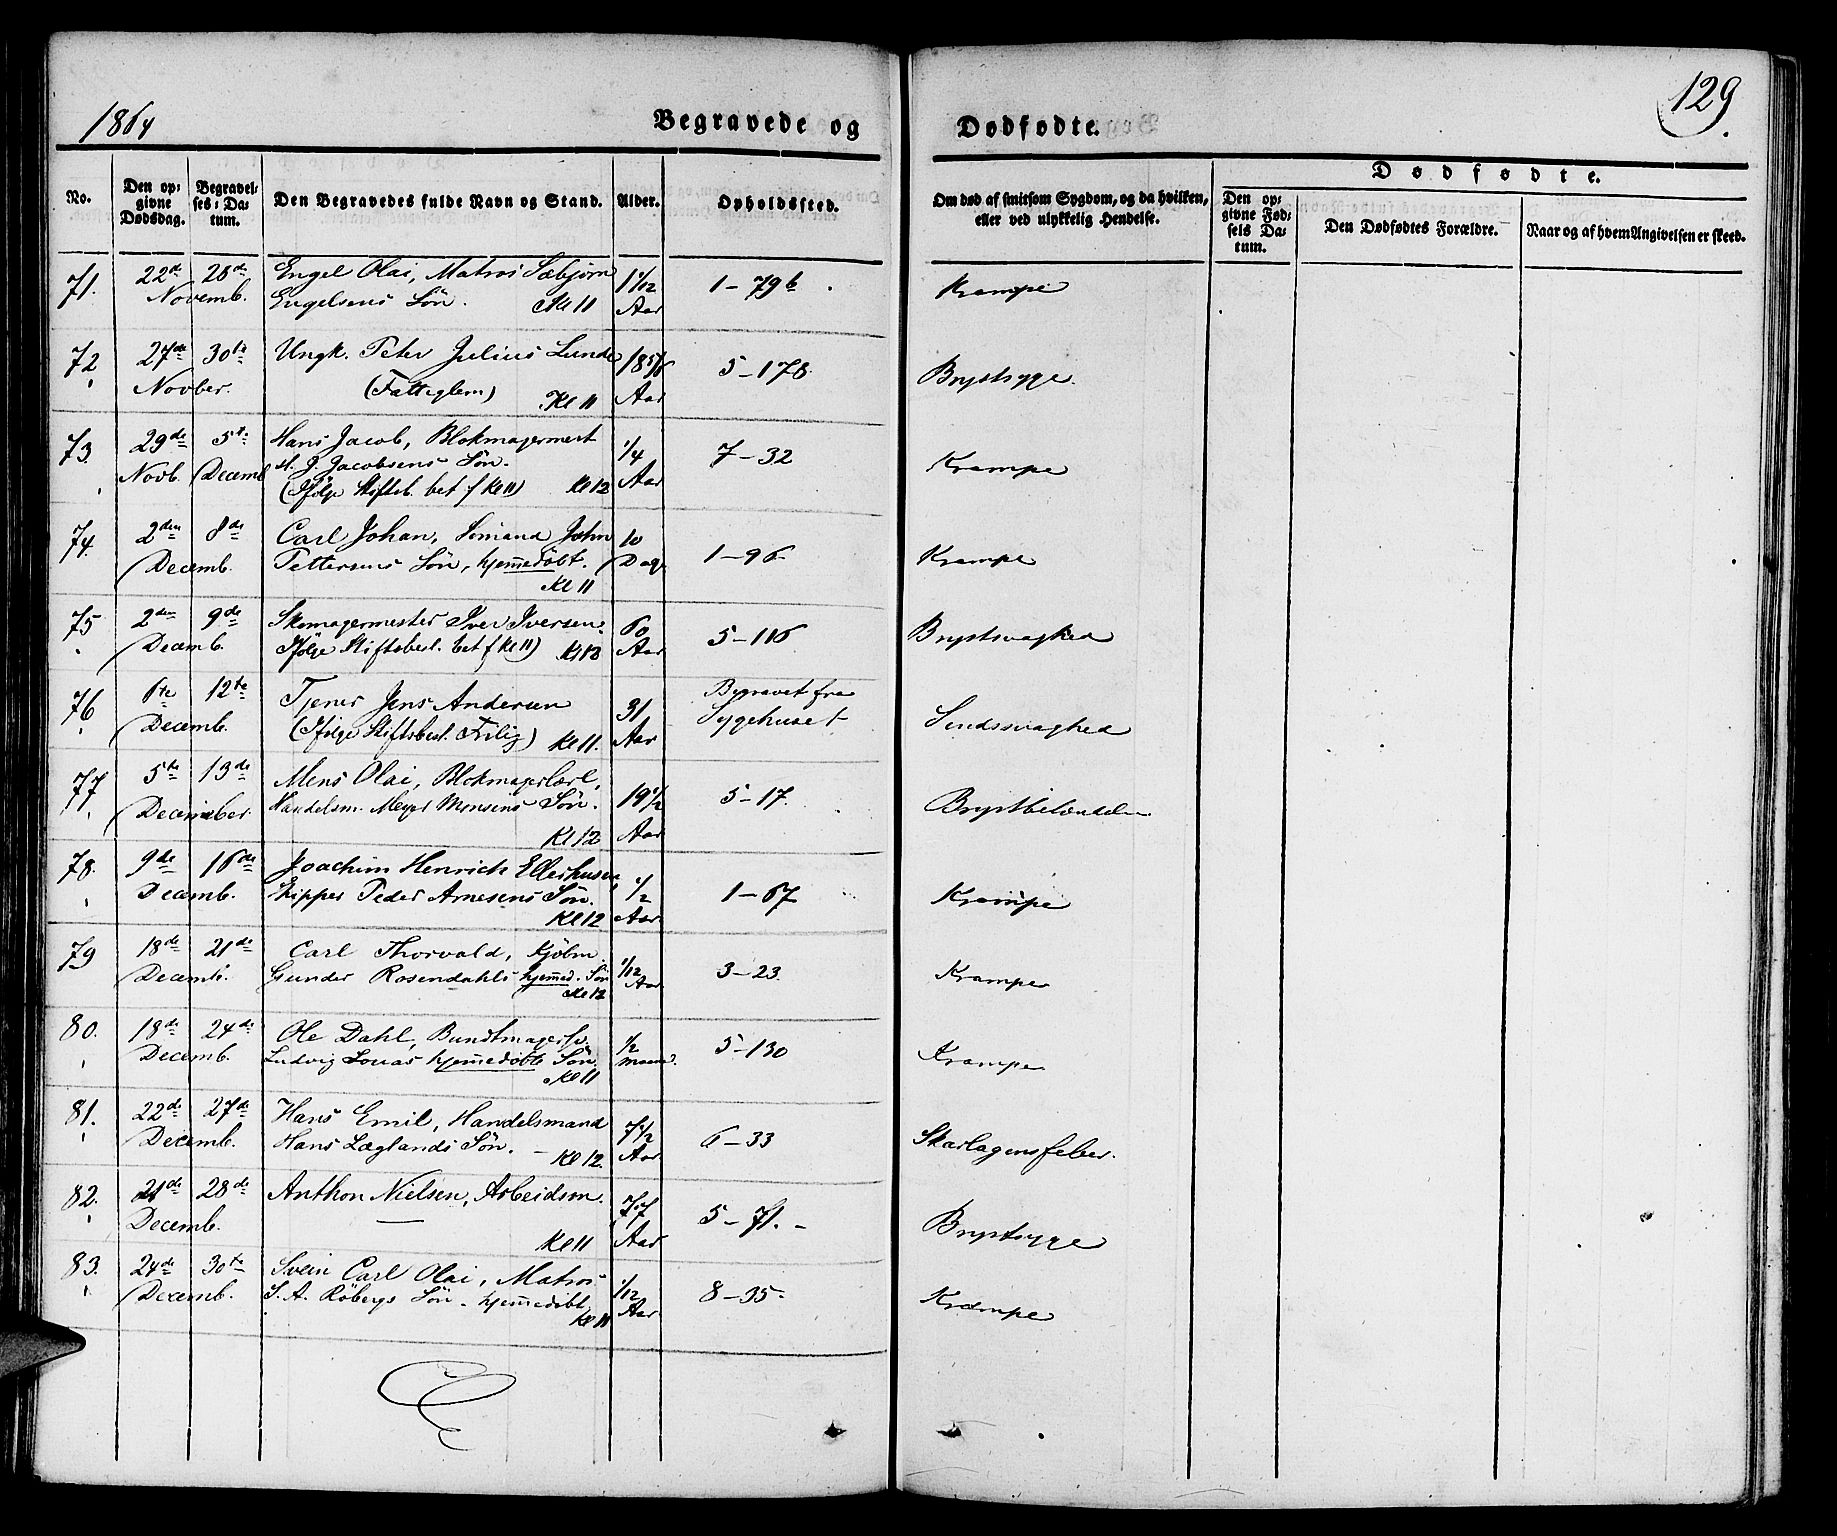 1864
Begravede og Dødfødte.
129.
No.
Den opgivne Dødsdag.
Begravelses-Datum.
Den Begravedes fulde Navn og Stand.
Alder.
Opholdssted.
Om død af smitsom Sygdom, og da hvilken, eller ved ulykkelig Hendelse.
Dødfødte.
Den opgivne Fødsels Datum.
Den Dødfødtes Forældre.
Naar og af hvem Angivelsen er skeed.
71. 22de 28de Engel Olai, Matros Sæbjørn 1 1/12 1-79b. Krampe
Novemb. Engelsens Søn. Kl 11 Aar
72 27de 30te Ungk. Peter Julius Lunde 18 5/6 5-178. Brystsyge.
Novber. (Fattiglem) Kl 11 Aar
73. 29de 5te Hans Jacob, Blokmagermest 1/4 7-32 Krampe
Novb. Decemb H. J. Jacobsens Søn. Aar
(Ifølge Stiftsb. bet f Kl 11) Kl 12
74. 2den 8de Carl Johan, Sømand John 10 1-96 Krampe
Decemb. Pettersens Søn, hjemmedöbt. Dag.
Kl 11
75 2den 9de Skomagermester Iver Iversen. 60 5-116 Brystsvaghed
Decemb. Ifølge Stiftsbesl. bet f Kl 11) Kl 12 Aar
76 6te 12te Tjener Jens Andersen 31 Begravet fra Sygehuset Sindssvaghed
Decemb. (Ifølge Stiftsbesl. Frilig) Kl 11. Aar
77 5te 13de Mons Olai, Blokmagerlærl, 19 1/2 5-17.
December Handelsm. Meyer Monsens Søn. Aar
Kl 12
78. 9de 16de Joachim Henrich Ellerhusen, 1/2 1-67 Krampe
Decemb. Skipper Peder Arnesens Søn. Aar
Kl 12
79 18de 21de Carl Thorvald, Kjöbm. 1/12 3-23. Krampe
Decemb. Gunder Rosendahls hjemmed. Søn Aar
Kl 12
80. 18de 24de Ole Dahl, Bundtmagersv. 1/2 5-130 Krampe
Decemb. Ludvig Louas hjemmedöbte Søn. Maaned.
Kl 11
81. 22de 27de Hans Emil, Handelsmand 7 1/2 6-33 Skarlagensfeber.
Decemb. Hans Læglands Søn. - Kl 12. Aar
82. 21de 28de Anthon Nielsen, Arbeidsm. 77 5-71.- Brystsyge
Decemb. Kl 11 Aar
83. 24de 30te Svein Carl Olai, Matros 1/12 8-35. Krampe
Decemb. S. A. Röbergs Søn. hjemmedöbt Aar
Kl 11